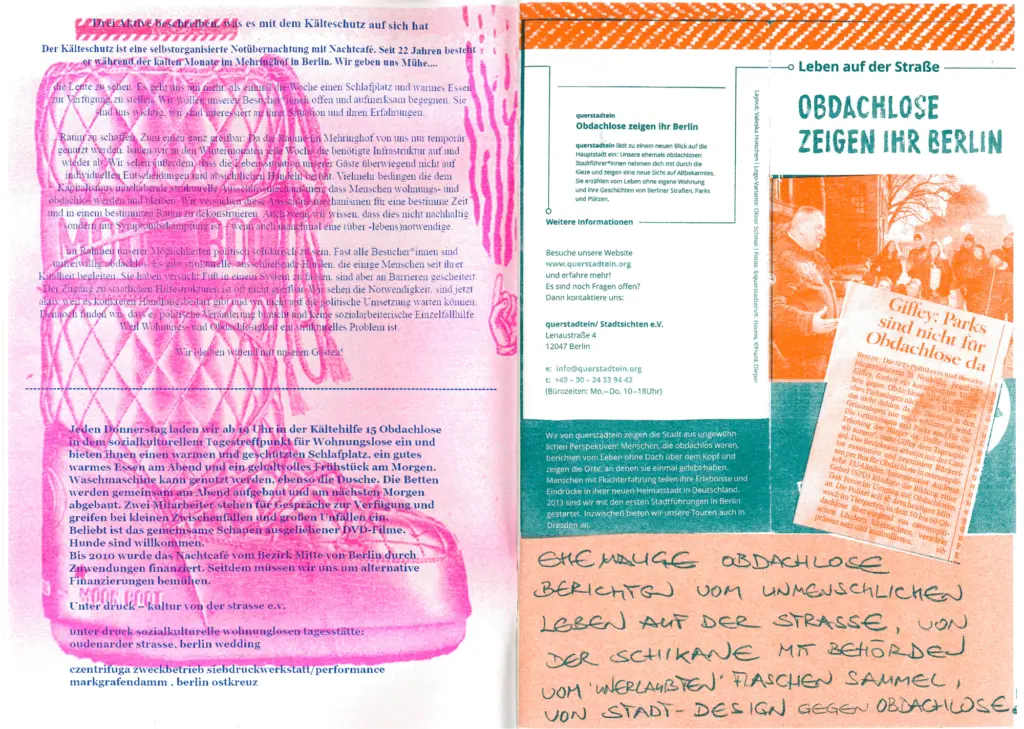 Drei Aktive beschreiben, was es mit dem Kälteschutz auf sich hat
Der Kälteschutz ist eine selbstorganisierte Notübernachtung mit Nachtcafé. Seit 22 Jahren besteht
er während der kalten Monate im Mehringhof in Berlin. Wir geben uns Mühe,...
die Leute zu sehen. Es geht uns um mehr, als einmal die Woche einen Schlafplatz und warmes Essen
zur Verfügung zu stellen. Wir wollen unseren Besucher*innen offen und aufmerksam begegnen. Sie
sind uns wichtig, wir sind interessiert an ihrer Situation und ihren Erfahrungen.
Raum zu schaffen. Zum einen ganz greifbar: Da die Räume im Mehringhof von uns nur temporär
genutzt werden, bauen wir in den Wintermonaten jede Woche die benötigte Infrastruktur auf und
wieder ab. Wir sehen außerdem, dass die Lebenssituation unserer Gäste überwiegend nicht auf
individuellen Entscheidungen und absichtlichen Handeln beruht. Vielmehr bedingen die dem
Kapitalismus strukturelle dass Menschen wohnungs- und
obdachlos werden und bleiben. Wir versuchen diese Ausschlussmechanismen für eine bestimmte Zeit
und in einem bestimmten Raum zu dekonstruieren. Auch wenn wir wissen, dass dies nicht nachhaltig
sondern nur Symptombekämpfung ist – wenn auch manchmal eine (über -)lebens)notwendige.
im Rahmen unserer Möglichkeiten politisch solidarisch zu sein. Fast alle Besucher*innen sind
unfreiwillig obdachlos. Es gibt strukturelle, ausschließende Hürden, die einige Menschen seit ihrer
Kindheit begleiten. Sie haben versucht Fuß in einem System zu fassen, sind aber an Barrieren gescheitert.
Der Zugang zu staatlichen Hilfestrukturen ist oft nicht greifbar. Wir sehen die Notwendigkeit, sind jetzt
aktiv weil es konkreten Handlungsbedarf gibt und wir nicht auf die politische Umsetzung warten können.
Dennoch finden wir, dass es politische Veränderung braucht und keine sozialarbeiterische Einzelfallhilfe.
Weil Wohnungs- und Obdachlosigkeit ein strukturelles Problem ist.
Wir bleiben wütend mit unseren Gästen!
Jeden Donnerstag laden wir ab 19 Uhr in der Kältehilfe 15 Obdachlose
in dem sozialkulturellem Tagestreffpunkt für Wohnungslose ein und
bieten ihnen einen warmen und geschützten Schlafplatz, ein gutes
warmes Essen am Abend und ein gehaltvolles Frühstück am Morgen.
Waschmaschine kann genutzt werden, ebenso die Dusche. Die Betten
werden gemeinsam am Abend aufgebaut und am nächsten Morgen
abgebaut. Zwei Mitarbeiter stehen für Gespräche zur Verfügung und
greifen bei kleinen Zwischenfällen und großen Unfällen ein.
Beliebt ist das gemeinsame Schauen ausgeliehener DVD-Filme.
Hunde sind willkommen.
Bis 2010 wurde das Nachtcafé vom Bezirk Mitte von Berlin durch
Zuwendungen finanziert. Seitdem müssen wir uns um alternative
Finanzierungen bemühen.
MOON BOOT
Unter druck – kultur von der strasse e.v.
unter druck sozialkulturelle wohnunglosen tagesstätte:
oudenarder strasse. berlin wedding
czentrifuga zweckbetrieb siebdruckwerkstatt/performance
markgrafendamm . berlin ostkreuz
querstadtein
Obdachlose zeigen ihr Berlin
querstadtein lädt zu einem neuen Blick auf die
Hauptstadt ein: Unsere ehemals obdachlosen
Stadtführer*innen nehmen dich mit durch die
Kieze und zeigen eine neue Sicht auf Altbekanntes.
Sie erzählen vom Leben ohne eigene Wohnung
und ihre Geschichten von Berliner Straßen, Parks
und Plätzen.
Weitere Informationen
Besuche unsere Website
www.querstadtein.org
und erfahre mehr!
Es sind noch Fragen offen?
Dann kontaktiere uns:
querstadtein/ Stadtsichten e.V.
Lenaustraße 4
12047 Berlin
e: info@querstadtein.org
t: +49 – 30 – 24 33 94 42
(Bürozeiten: Mo.– Do. 10–18Uhr)
Wir von querstadtein zeigen die Stadt aus ungewöhn-
lichen Perspektiven: Menschen, die obdachlos waren,
berichten vom Leben ohne Dach über dem Kopf und
zeigen die Orte, an denen sie einmal gelebt haben.
Menschen mit Fluchterfahrung teilen ihre Erlebnisse und
Eindrücke in ihrer neuen Heimatstadt in Deutschland.
2013 sind wir mit den ersten Stadtführungen in Berlin
gestartet. Inzwischen bieten wir unsere Touren auch in
Dresden an.
Leben auf der Straße
OBDACHLOSE
ZEIGEN IHR BERLIN
Giffey: Parks
sind nicht für
Obdachlose da
EHEMALIGE OBDACHLOSE
BERICHTEN VOM UNMENSCHLICHEN
LEBEN AUF DER STRASSE, VON
DER SCHIKANE MIT BEHÖRDEN
VOM 'UNERLAUBTEN' FLASCHEN SAMMEL,
VON STADT-DESIGN GEGEN OBDACHLOSE.